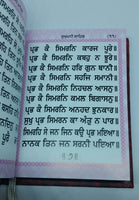 ਸੁਖਮਨੀ ਸਾਹਿਬ
ਪ੍ਰਭ ਕੈ ਸਿਮਰਨਿ ਕਾਰਜ ਪੂਰੇ ॥
ਪ੍ਰਭ ਕੈ ਸਿਮਰਨਿ ਕਬਹੁ ਨ ਝੂਰੇ ॥
ਪ੍ਰਭ ਕੈ ਸਿਮਰਨਿ ਹਰਿ ਗੁਨ ਬਾਨੀ ॥
ਪ੍ਰਭ ਕੈ ਸਿਮਰਨਿ ਸਹਜਿ ਸਮਾਨੀ ॥
ਪ੍ਰਭ ਕੈ ਸਿਮਰਨਿ ਨਿਹਚਲ ਆਸਨੁ ॥
ਪ੍ਰਭ ਕੈ ਸਿਮਰਨਿ ਕਮਲ ਬਿਗਾਸਨੁ ॥
ਪ੍ਰਭ ਕੈ ਸਿਮਰਨਿ ਅਨਹਦ ਝੁਨਕਾਰ ॥
ਸੁਖੁ ਪ੍ਰਭ ਸਿਮਰਨ ਕਾ ਅੰਤੁ ਨ ਪਾਰ ॥
ਸਿਮਰਹਿ ਸੇ ਜਨ ਜਿਨ ਕਉ ਪ੍ਰਭ ਮਇਆ ॥
ਨਾਨਕ ਤਿਨ ਜਨ ਸਰਨੀ ਪਇਆ ॥
॥੭॥